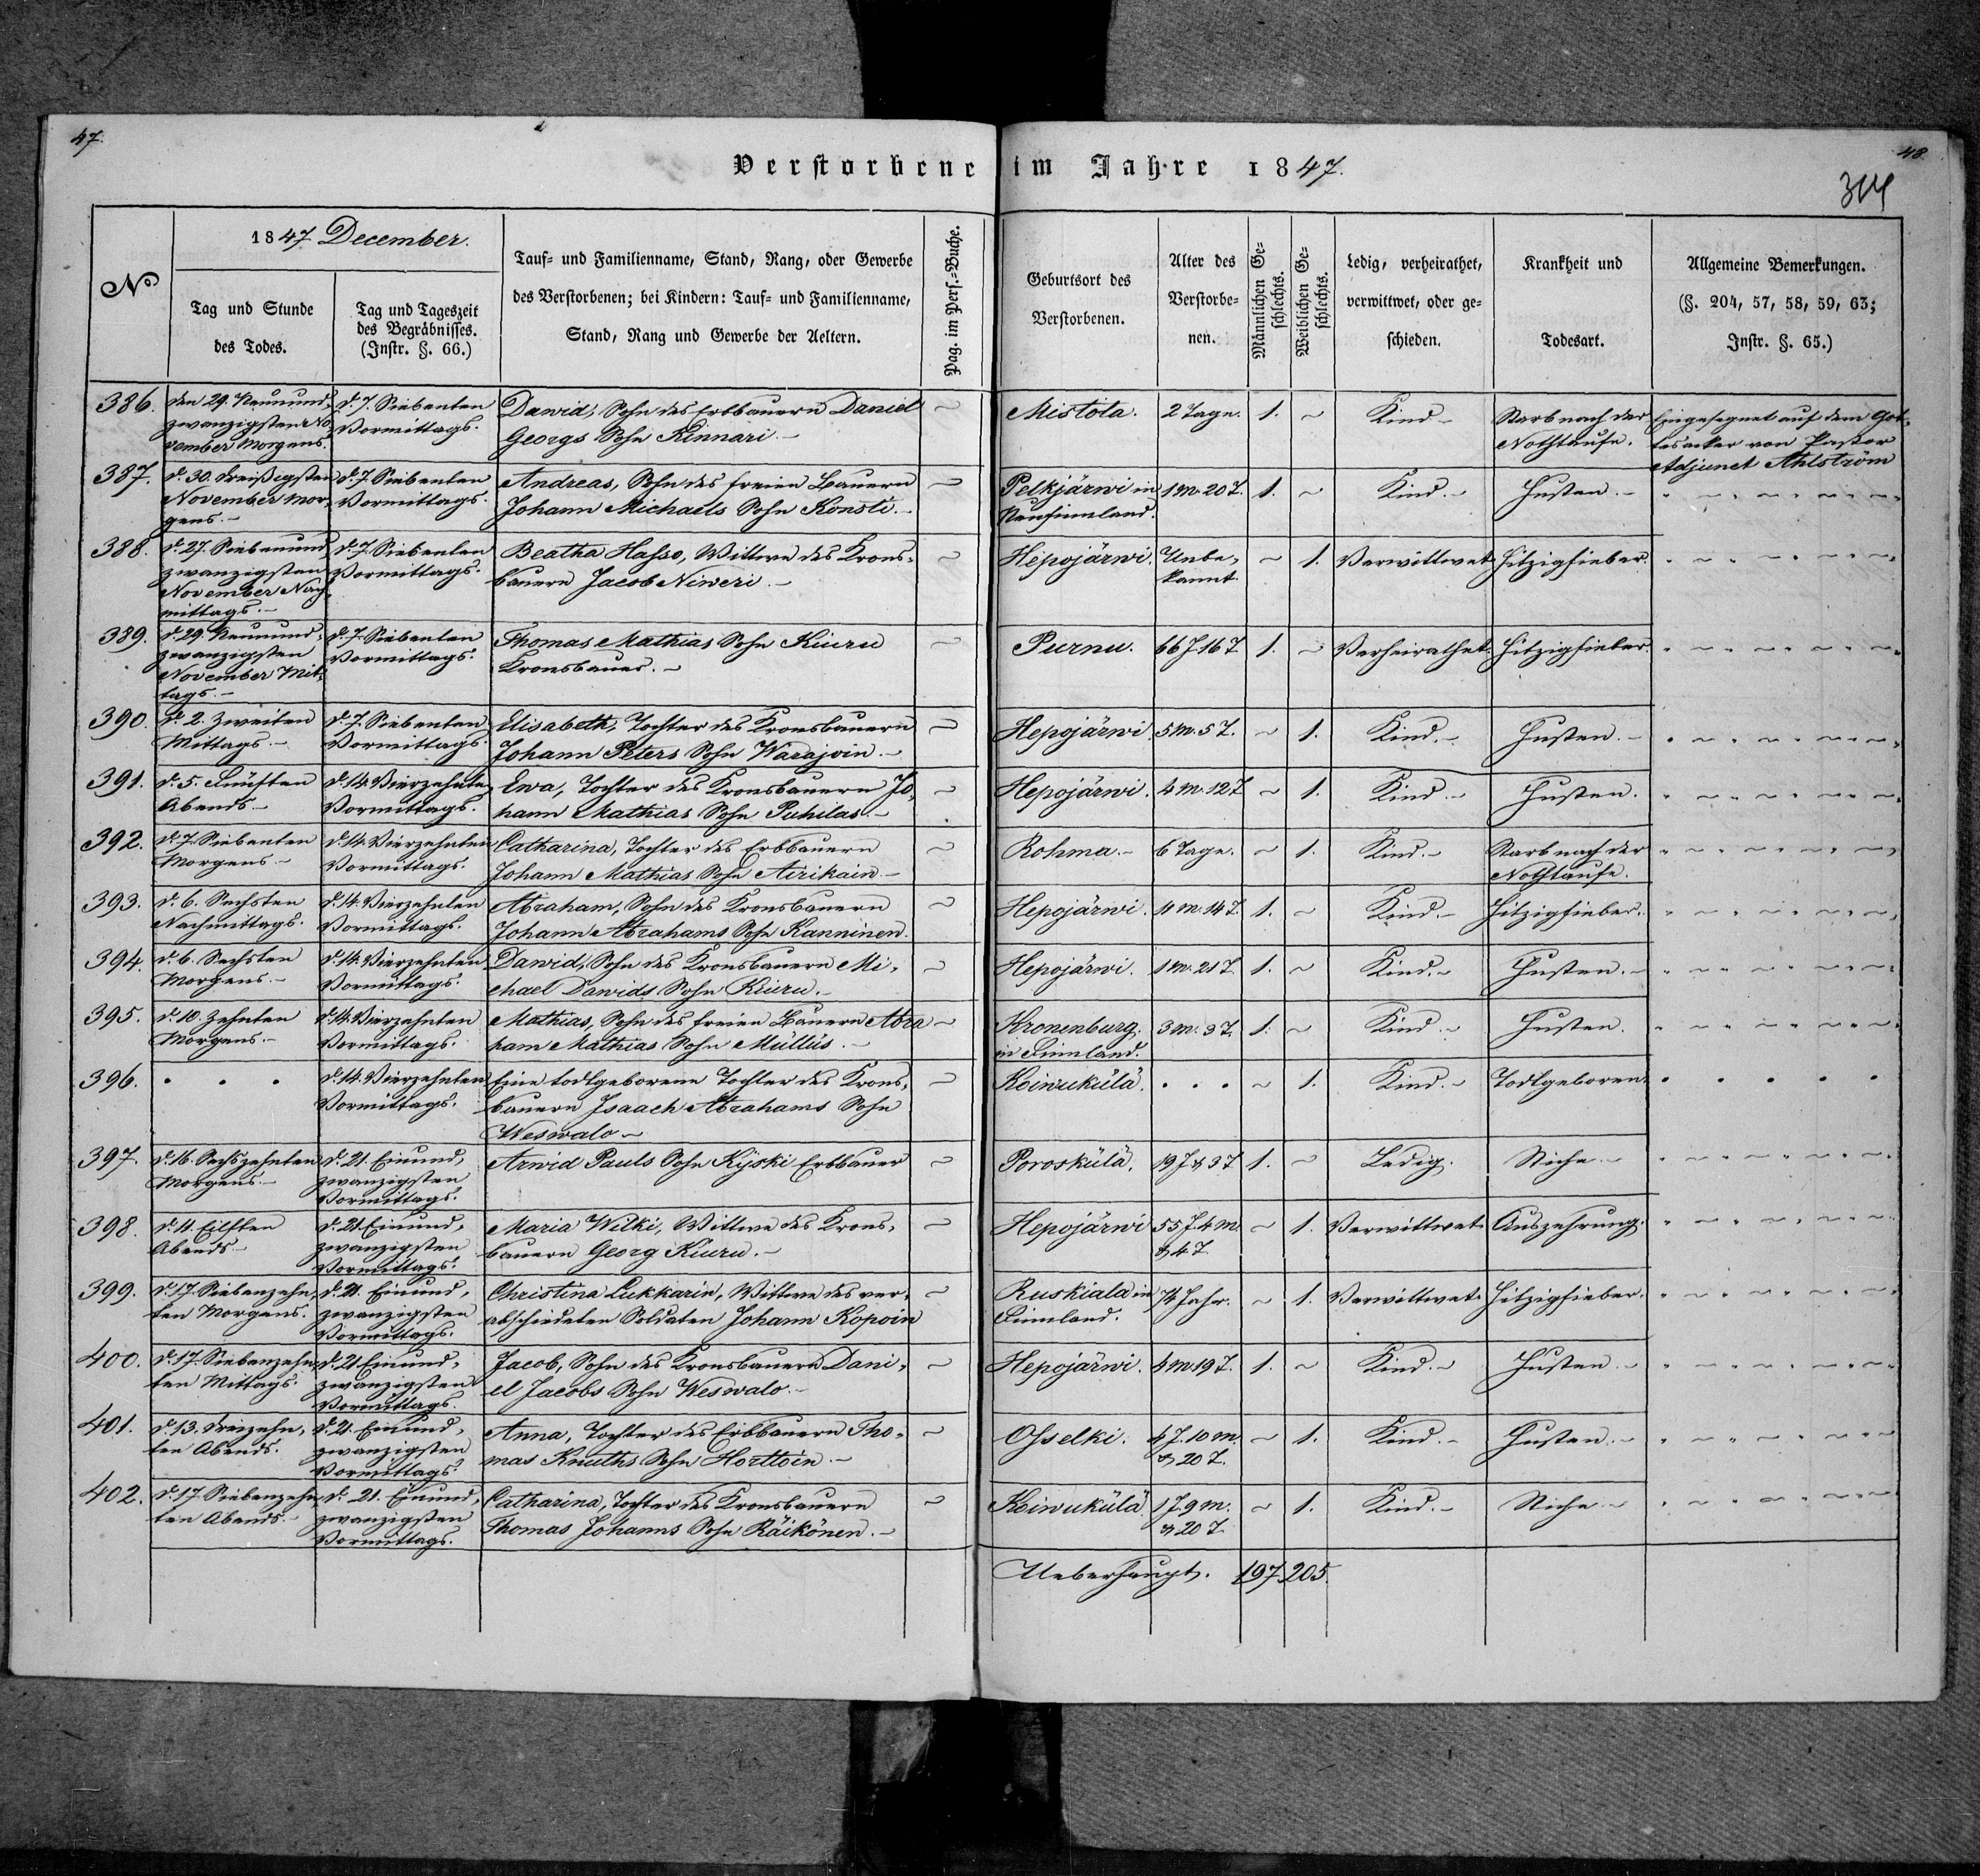 47.
48.
Verstorbene im Jahre 1847.
314
No
1847 December.
Tag und Stunde
des Todes.
Tag und Tageszeit
des Begräbnisses.
(Instr. §. 66.)
Tauf- und Familienname, Stand, Rang, oder Gewerbe
des Verstorbenen; bei Kindern: Tauf- und Familienname,
Stand, Rang und Gewerbe der Aeltern.
Pag. im Pers.-Buche.
Geburtsort des
Verstorbenen.
Alter des
Verstorbe-
nen.
Männlichen Ge-
schlechts.
Weiblichen Ge-
schlechts.
Ledig, verheirathet,
verwittwet, oder ge-
schieden.
Krankheit und
Todesart.
Allgemeine Bemerkungen.
(§. 204, 57, 58, 59, 63;
Instr. §. 65.)
386.
den 29. Neunund-
zwanzigsten No
vember Morgens.
d. 7. Siebenten
Vormittags.
Dawid, Sohn des Erbbauern Daniel
Georgs Sohn Kinnari.
Mistola.
2 Tage.
1.
Kind
Starb nach der
Nothtaufe.
Eingesegnet auf dem Got-
tesacker von Pastor
Adjunct Ahlström
387.
d. 30. dreißigsten
November Mor-
gens.
d. 7. Siebenten
Vormittags.
Andreas, Sohn des freien Bauern
Johann Michaels Sohn Konsti.
Pelkjärwi in
Neufinnland.
1 M. 20 T.
1.
Kind.
Husten.
388.
d. 27. Siebenund
zwanzigsten
November Nach-
mittags.
d. 7. Siebenten
Vormittags.
Beatha Hasso, Wittwe des Krons-
bauern Jacob Niweri.
Hepojärwi.
Unbe-
kannt.
1.
Verwittwet
Hitzigfieber.
389.
d. 29. Neunund-
zwanzigsten
November Mit-
tags.
d. 7. Siebenten
Vormittags.
Thomas Mathias Sohn Kiuru
Kronsbauer.
Purnu.
66 J. 16 T.
1.
Verheirathet.
Hitzigfieber.
390.
d. 2. Zweiten
Mittags.
d. 7. Siebenten
Vormittags.
Elisabeth, Tochter des Kronsbauern
Johann Peters Sohn Warajoin.
Hepojärwi.
5 M. 5 T.
1.
Kind.
Husten.
391.
d. 5. Fünften
Abends
d. 14. Vierzehnten
Vormittags.
Ewa, Tochter des Kronsbauern Jo-
hann Mathias Sohn Puhilas.
Hepojärwi.
4 M. 12 T.
1.
Kind.
Husten.
392.
d. 7. Siebenten
Morgens.
d. 14. Vierzehnten
Vormittags.
Catharina, Tochter des Erbbauern
Johann Mathias Sohn Airikain
Rohma.
6 Tage.
1.
Kind.
Starb nach der
Nothtaufe.
393.
d. 6. Sechsten
Nachmittags.
d. 14. Vierzehnten
Vormittags.
Abraham, Sohn des Kronsbauern
Johann Abrahams Sohn Kanninen.
Hepojärwi.
4 M. 14 T.
1.
Kind.
Hitzigfieber.
394.
d. 6. Sechsten
Morgens.
d. 14. Vierzehnten
Vormittags.
Dawid, Sohn des Kronsbauern Mi-
chael Dawids Sohn Kiuru.
Hepojärwi.
1 M. 21 T.
1.
Kind.
Husten.
395.
d. 10. Zehnten
Morgens.
d. 14. Vierzehnten
Vormittags.
Mathias, Sohn des freien Bauern Abra
ham Mathias Sohn Mullüs.
Kronenburg.
in Finnland.
3 M. 3 T.
1.
Kind.
Husten.
396.
d. 14. Vierzehnten
Vormittags.
Eine todtgeborene Tochter des Krons-
bauern Isaach Abrahams Sohn
Weswalo
Koiwukülä.
1.
Kind.
Todtgeboren.
397.
d. 16. Sechszehnten
Morgens.
d. 21. Einund-
zwanzigsten
Vormittags.
Arwid Pauls Sohn Kijski Erbbauer
Poroskülä.
19 J. & 3 T.
1.
Ledig.
Stiche
398.
d. 11. Eilften
Abends
d. 21. Einund-
zwanzigsten
Vormittags.
Maria Wilki, Wittwe des Krons-
bauern Georg Kiuru.
Hepojärwi
55 J. 4 M.
& 4 T.
1.
Verwittwet.
Auszehrung.
399.
d. 17. Siebenzehn-
ten Morgens.
d. 21. Einund-
zwanzigsten
Vormittags.
Christina Lukkarin, Wittwe des ver-
abschiedeten Soldaten Johann Kopoin
Ruskiala in
Finnland.
74 Jahr.
1.
Verwittwet.
Hitzigfieber.
400.
d. 17. Siebenzehn-
ten Mittags.
d. 21. Einund-
zwanzigsten
Vormittags.
Jacob, Sohn des Kronsbauern Dani-
el Jacobs Sohn Weswalo.
Hepojärwi.
4 M. 19 T.
1.
Kind.
Husten.
401.
d. 13. Dreizehn-
ten Abends.
d. 21. Einund-
zwanzigsten
Vormittags.
Anna, Tochter des Erbbauern Tho-
mas Knuths Sohn Horttoin.
Osselki.
4 J. 10 M.
& 20 T.
1.
Kind.
Husten.
402.
d. 17. Siebenzehn-
ten Abends.
d. 21. Einund-
zwanzigsten
Vormittags.
Catharina, Tochter des Kronsbauern
Thomas Johanns Sohn Räikönen.
Koiwukülä
1 J. 9 M.
& 20 T.
1.
Kind.
Stiche
Ueberhaupt. 197. 205.